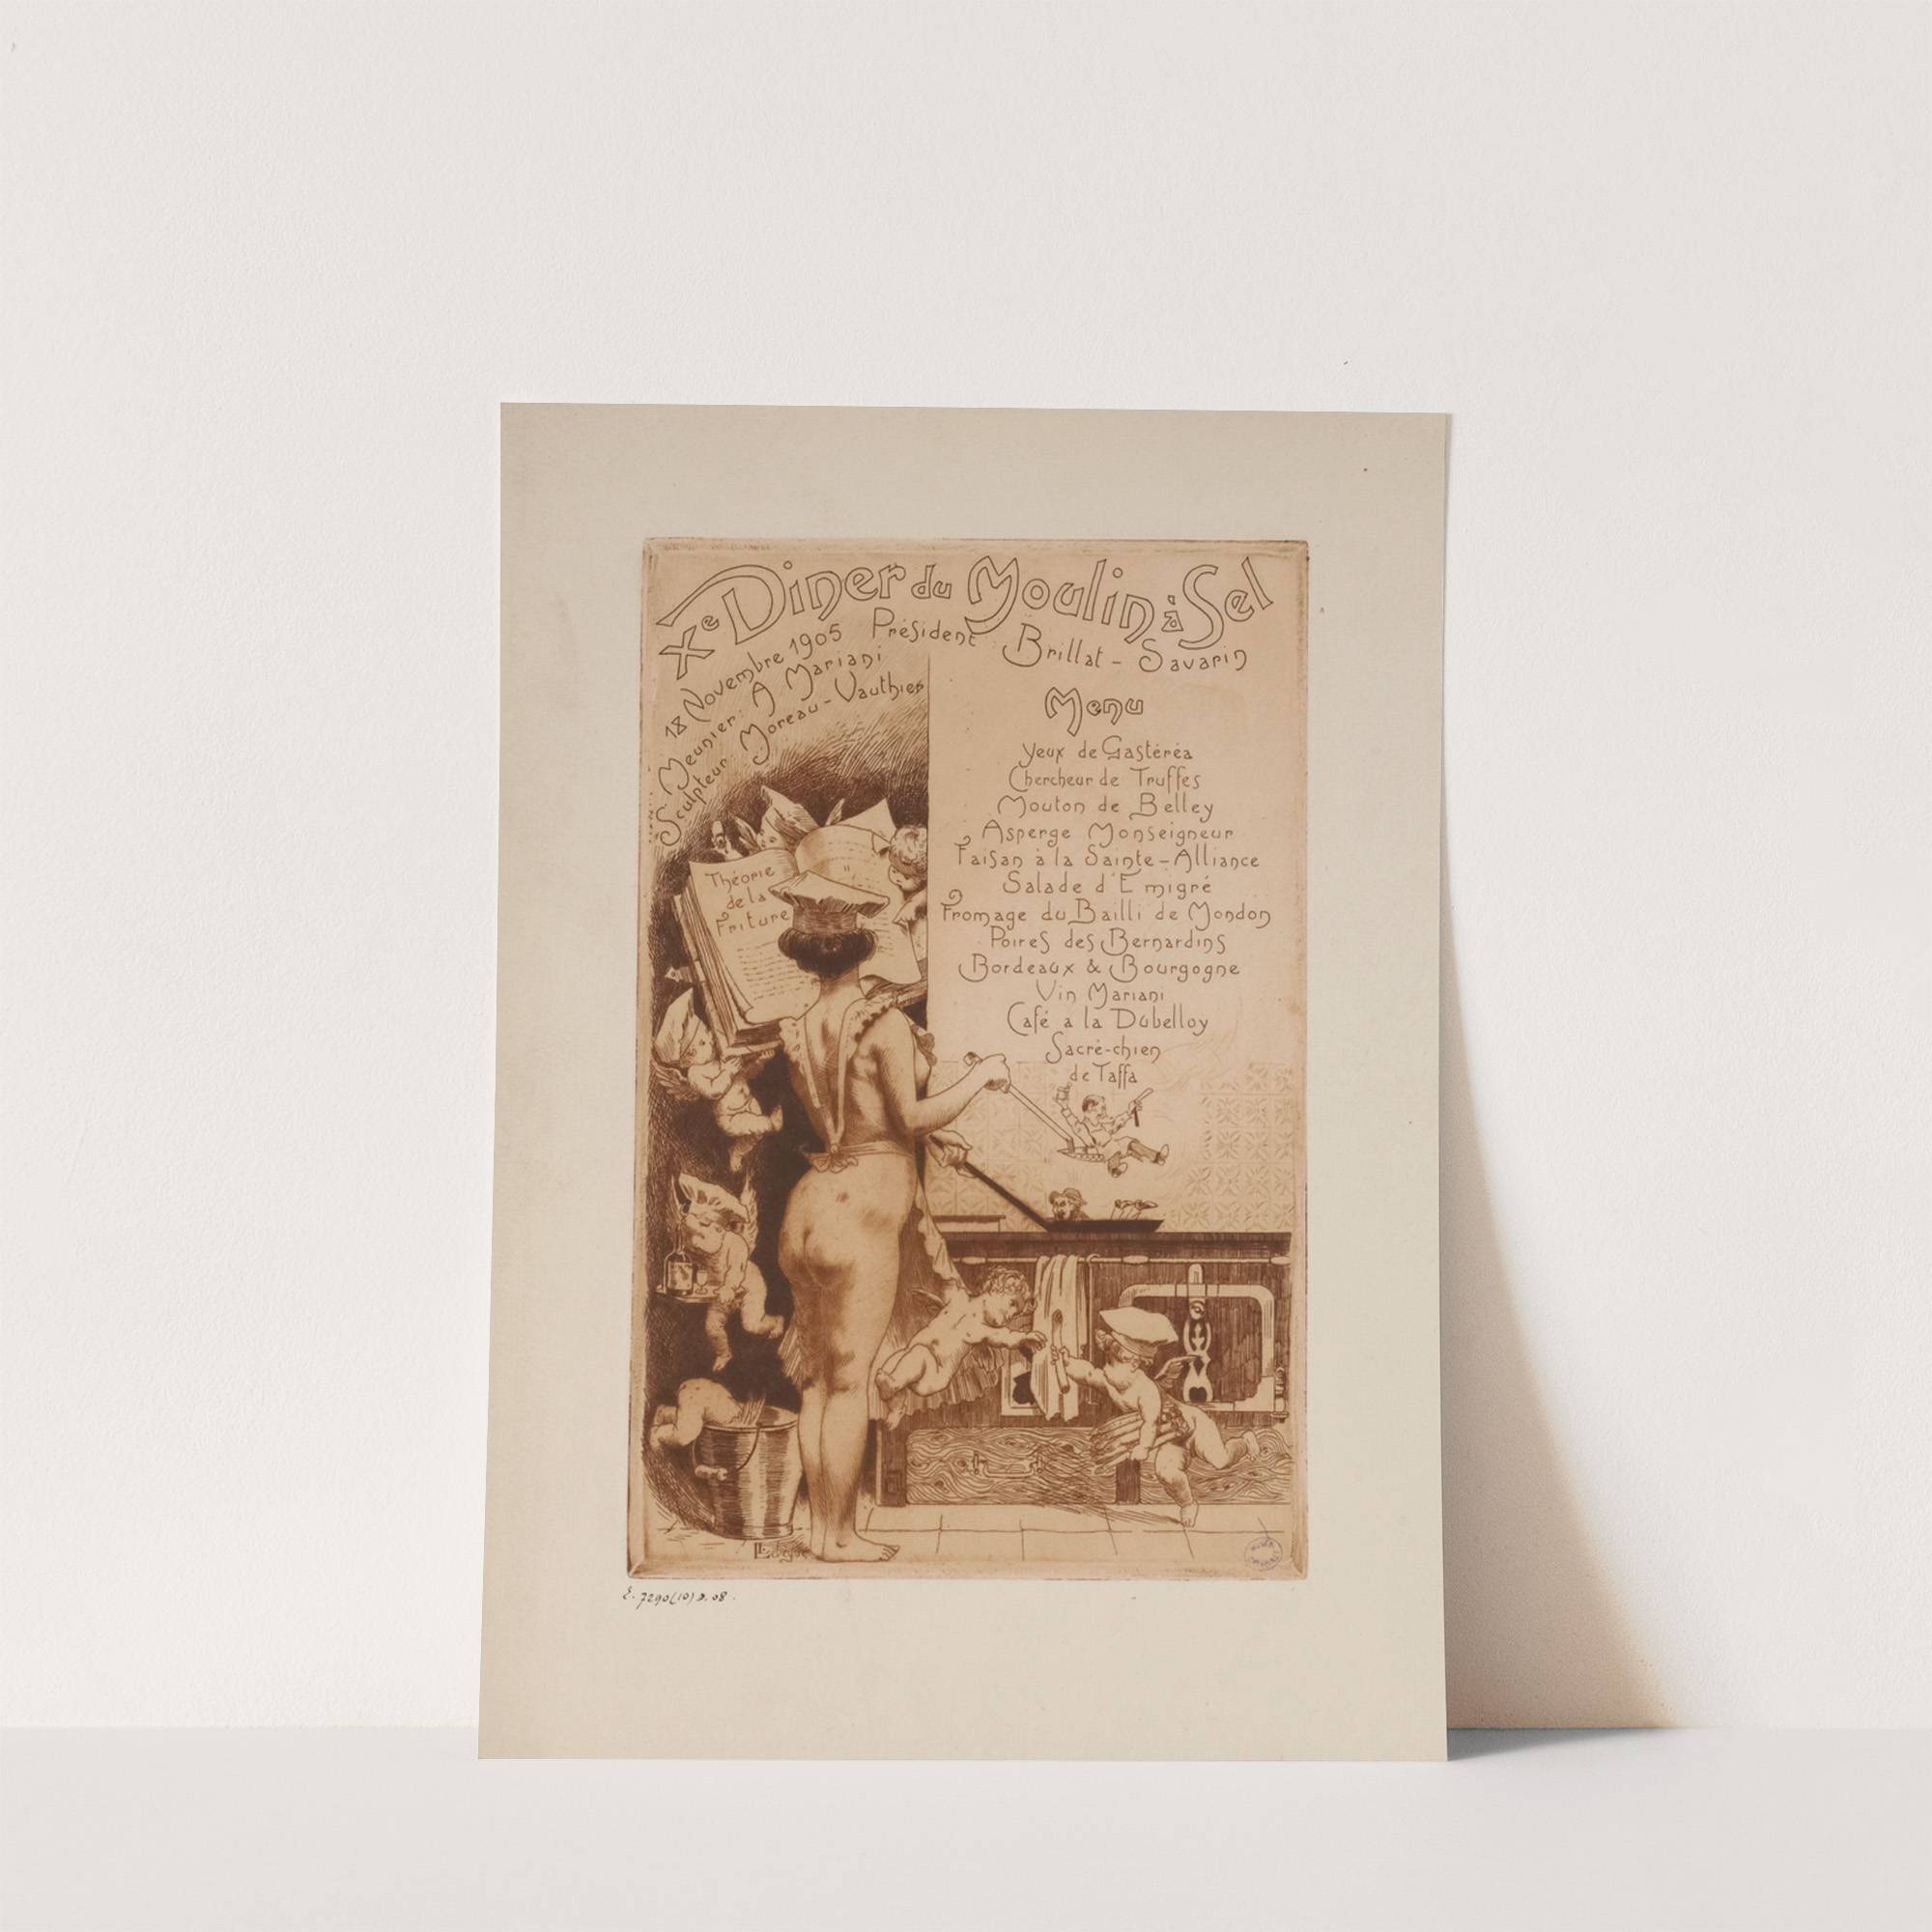 Xe Diner du Moulin à Sel
18 Novembre 1905 Président Brillat-Savarin
Meunier: A Mariani
Sculpteur Moreau-Vauthier
Menu
Yeux de Gastéréa
Chercheur de Truffes
Mouton de Belley
Asperge Monseigneur
Faisan à la Sainte-Alliance
Salade d'Emigré
Fromage du Bailli de Mondon
Poires des Bernardins
Bordeaux & Bourgogne
Vin Mariani
Café a la Dubelloy
Sacré-chien
de Taffa
Théorie
de la
Friture
E. 7290(10) D. 08.